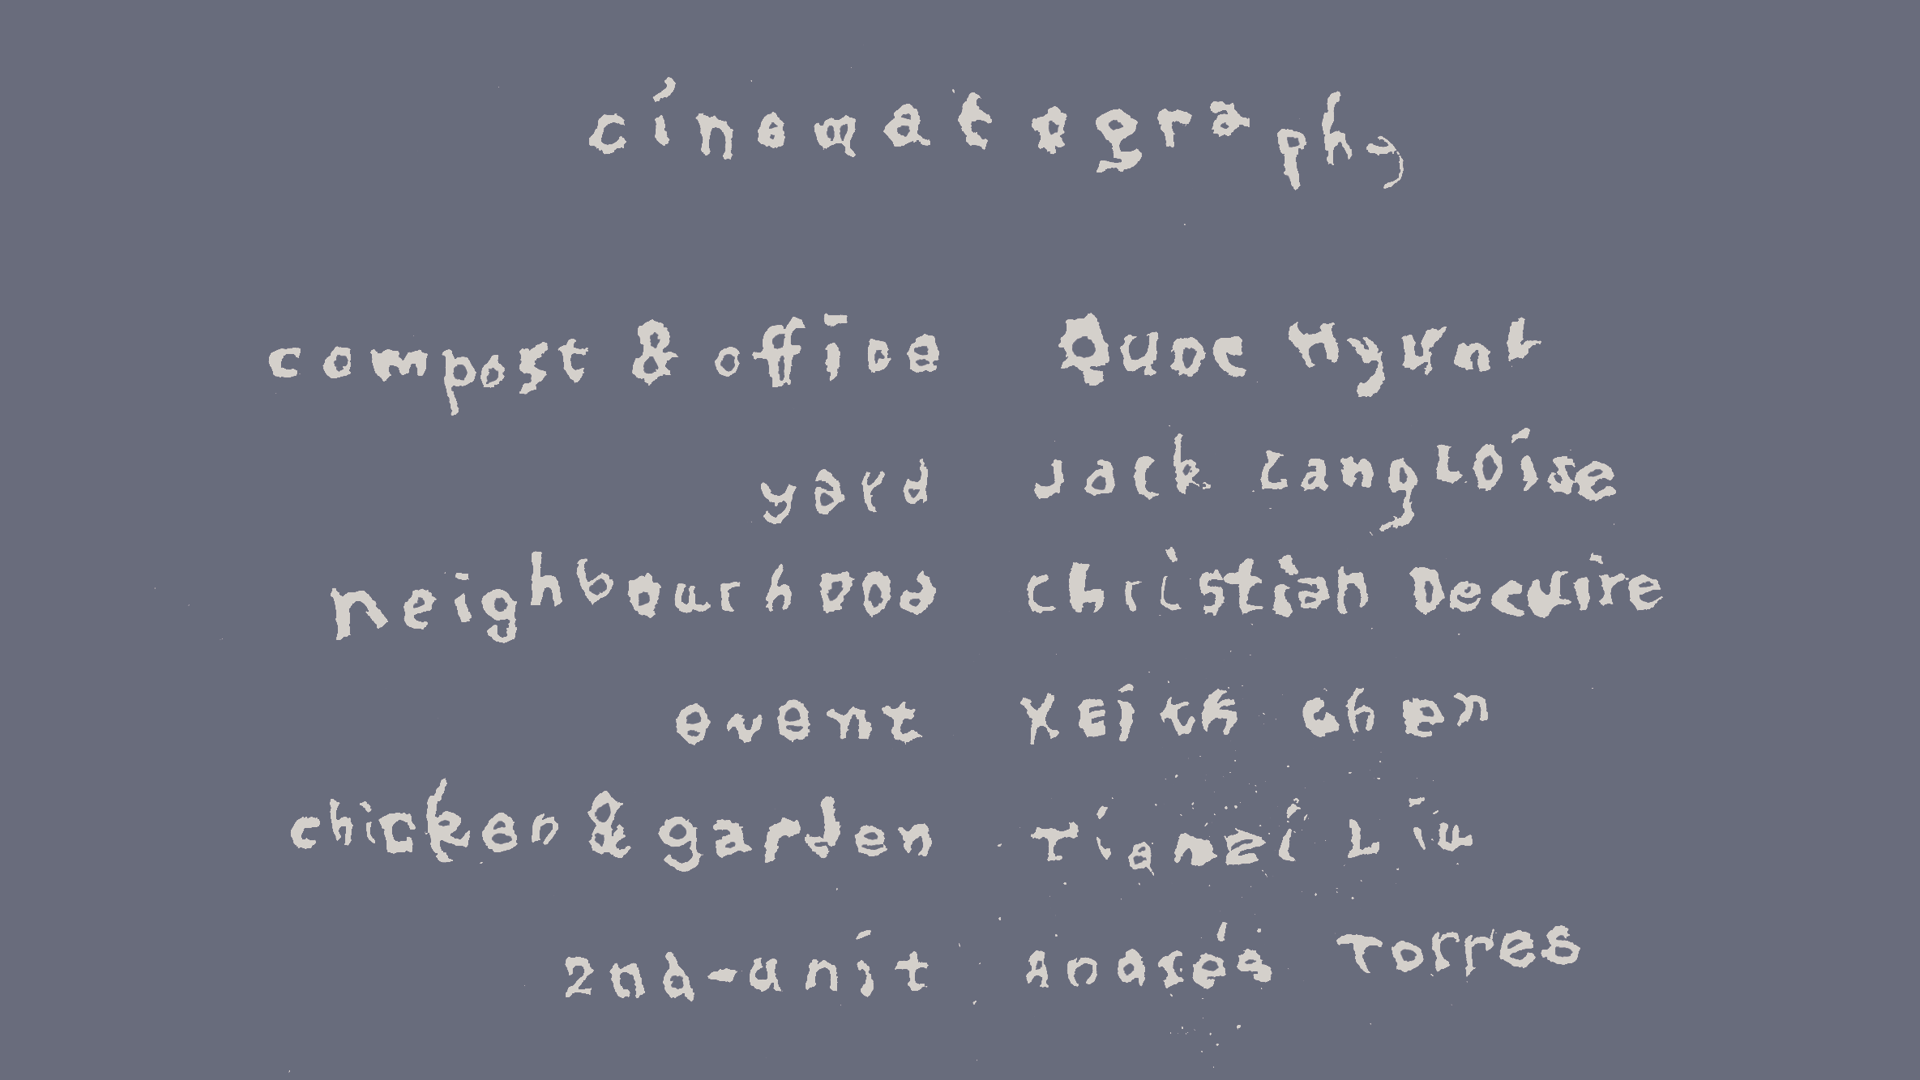 cinematography
compost & office Quoc Hyunh
yard Jack Langloise
neighbourhood Christian Decuire
event Keith Chen
chicken & garden Tianzi Liu
2nd-unit Andrés Torres